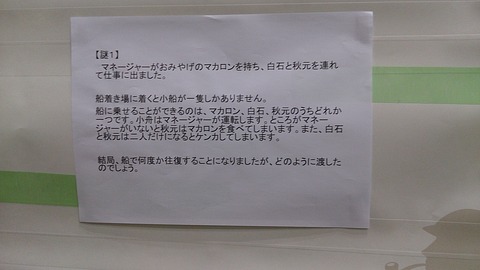 【謎1】
マネージャーがおみやげのマカロンを持ち、白石と秋元を連れ
て仕事に出ました。
船着き場に着くと小船が一隻しかありません。
船に乗せることができるのは、マカロン、白石、秋元のうちどれか
一つです。小舟はマネージャーが運転します。ところがマネー
ジャーがいないと秋元はマカロンを食べてしまいます。また、白石
と秋元は二人だけになるとケンカしてしまいます。
結局、船で何度か往復することになりましたが、どのように渡した
のでしょう。